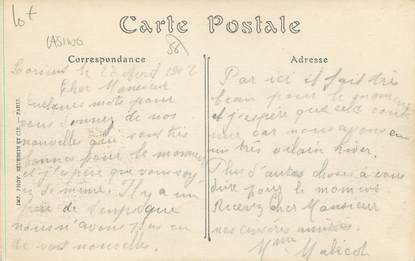 Carte Postale
CASINO
Correspondance
Adresse
le 28 Avril
Cher Monsieur
quelques mots pour
vous donnez de nos
nouvelles qui sont très
bonnes pour le moment
et j'espère que vous soyez
de même. Il y a un
de que
nous n'avons pas eu
de vos nouvelle.
Par ici il fait très
beau pour le moment
et j'espère que cela
car nous avons eu
un très vilain hiver.
Plus d'autres choses à vous
dire pour le moment
Recevez cher Monsieur
nos amitiés.
Mme
IMP. PHOT. NEURDEIN ET CIE. — PARIS.